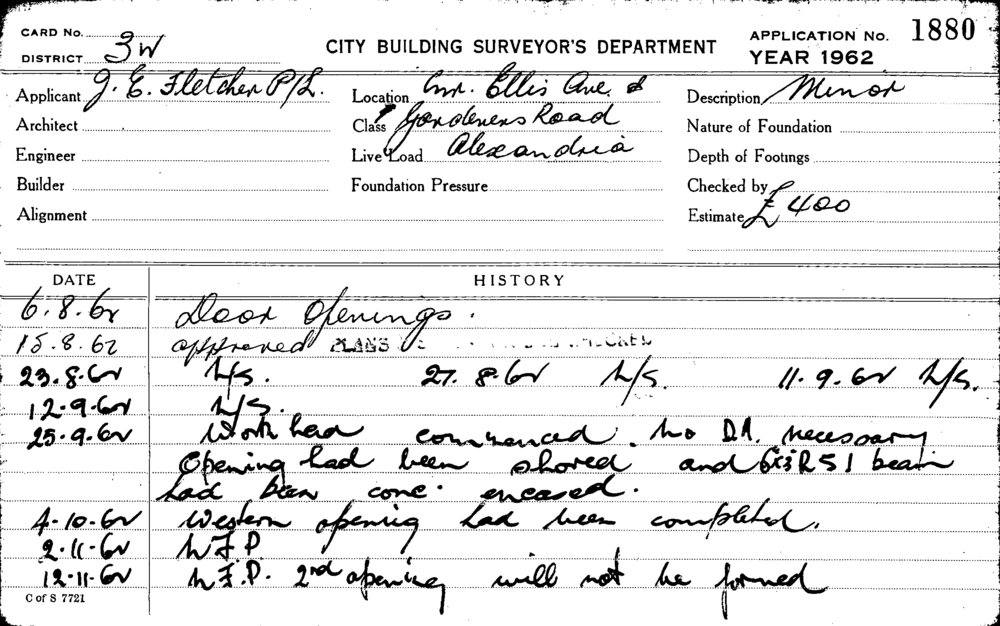 CARD No.
DISTRICT 3W
CITY BUILDING SURVEYOR'S DEPARTMENT
APPLICATION No. 1880
YEAR 1962
Applicant J. E. Fletcher P/L. Location Cnr. Ellis Ave. & Description Minor
Architect Class Gardeners Road Nature of Foundation
Engineer Live Load Alexandria Depth of Footings
Builder Foundation Pressure Checked by
Alignment Estimate £400
DATE HISTORY
6.8.62 Door Openings.
15.8.62 approved PLANS
23.8.62 N/S. 27.8.62 N/S. 11.9.62 N/S.
12.9.62 N/S.
25.9.62 Work had commenced. No D.A. necessary
Opening had been shored and RSJ beam
had been conc. encased.
4.10.62 Western opening had been completed.
2.11.62 N.F.P.
12.11.62 N.F.P. 2nd opening will not be formed
C of S 7721